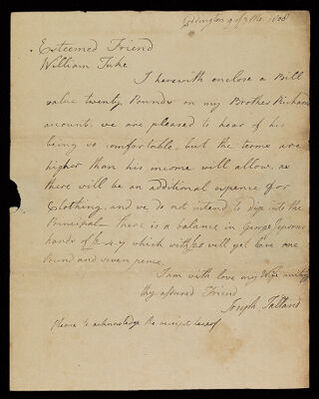 9 of 7 Mo. 1808
Esteemed Friend
William Tuke
I herewith enclose a Bill
value twenty Pounds on my Brother Richard
account, we are pleased to hear of his
being so comfortable, but the terms are
higher than his income will allow, as
there will be an additional expence for
Clothing, and we do not intend to dips into the
Principal - there is a balance in George Jepsons
hands of 4 - 7 which with will yet leave one
Pound and seven pence.
I am with love my Wife uniting
thy assured Friend
Joseph Talland
Please to acknowledge the receipt hereof